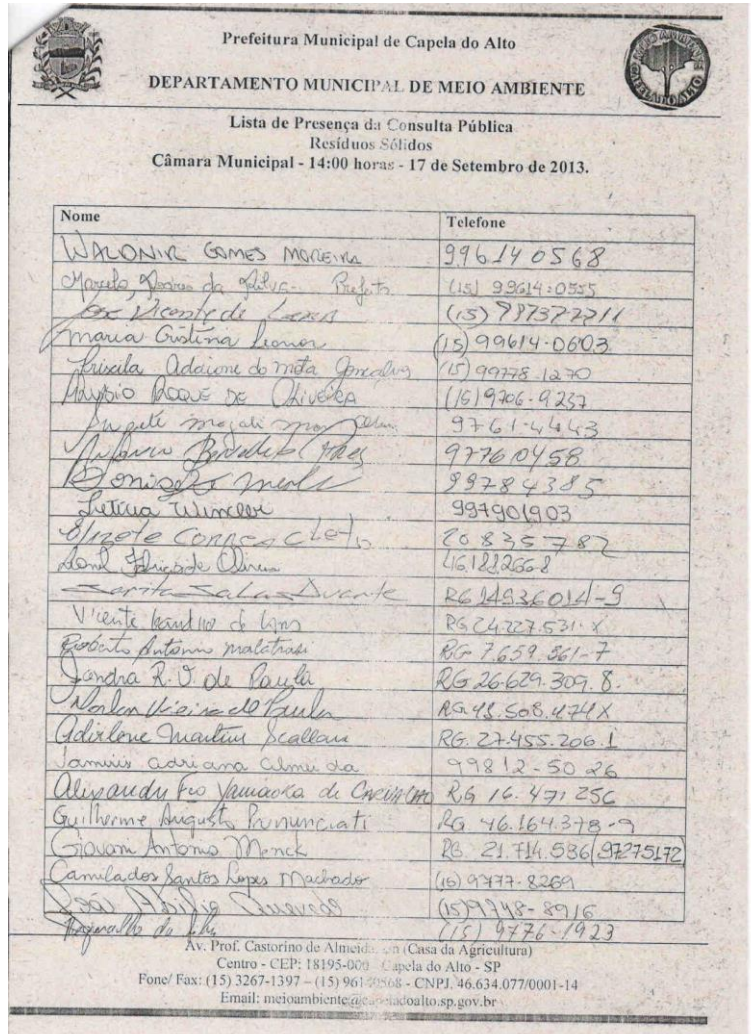 Prefeitura Municipal de Capela do Alto
DEPARTAMENTO MUNICIPAL DE MEIO AMBIENTE
Lista de Presença da Consulta Pública
Resíduos Sólidos
Câmara Municipal - 14:00 horas - 17 de Setembro de 2013.
Nome Telefone
WALDNIR GOMES MOREIRA 996140568
Marcelo Soares da Silva - Prefeito (15) 99614-0555
José Vicente de (15) 997377711
maria Cristina Leonor (15) 99614-0603
Priscila Adacione da mota Gonçalves (15) 99778-1270
ROQUE DE OLIVEIRA (15) 9706-9237
magali 9761-4443
97760458
Donisete 99784385
Letícia Winckler 997901903
Elizete CORREA Cleto 20835782
46.182.266-8
Sarita Salas Duarte RG 14936014-9
Vicente RG 24.227.531-X
Roberto Antonio malatrasi RG 7.659.861-7
Sandra R. V. de Paula RG 26.629.309.8.
Vieira de Paula RG 48.508.474X
Adirlene Martins Scallani RG. 27.455.206.1
adriana Almeida 99812-5026
Yamaoka de CARVALHO RG 16.471256
Guilherme Augusto Prnunciati RG 46.164.378-9
Giovani Antonio Menck RG 21.714.586 (97275172)
Camila dos Santos Lopes Machado (15) 9777-8269
(15) 9748-8916
da Silva (15) 9776-1923
Av. Prof. Castorino de Almeida (Casa da Agricultura)
Centro - CEP: 18195-000 Capela do Alto - SP
Fone/ Fax: (15) 3267-1397 – (15) 96140568 - CNPJ. 46.634.077/0001-14
Email: meioambiente@capeladoalto.sp.gov.br